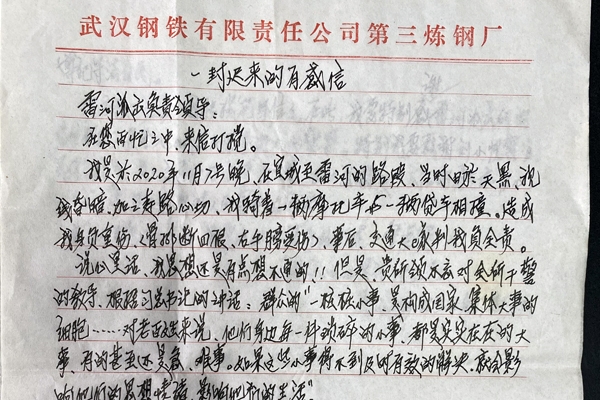 武汉钢铁有限责任公司第三炼钢厂
一封迟来的有感信
雷河派出所负责领导：
在您百忙之中，来信打扰。
我是於2020年11月7号晚，在宜城至雷河的路段，当时由於天黑视
线昏暗，加之赶路心切，我骑着一辆摩比车与一辆货车相撞。造成
我身负重伤（骨折断四根、右手膀受伤）事后，交通大队判我负全责。
说心里话，我思想还是有点想不通的!! 但是，贵所领导对全所干警
的教导，根据习总书记的讲话：群众的“一桩桩小事，是构成国家、集体大事的
细胞……对老百姓来说，他们身边每一件琐碎的小事，都是实实在在的大
事，有的甚至还是急事、难事。如果这些小事得不到及时有效的解决，就会影
响他们的思想情绪，影响他们的生活”